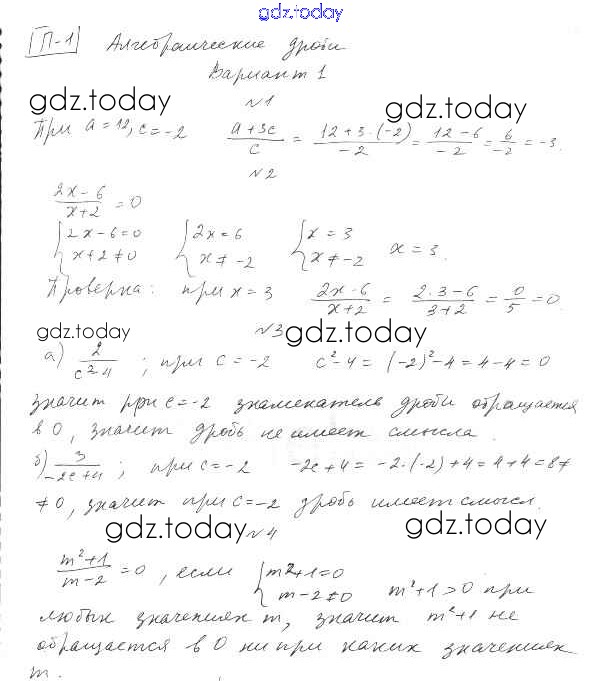 gdz.today
П-1 Алгебраические дроби
Вариант 1
gdz.today gdz.today
№1
При a = 12, c = -2 (a+3c)/c = (12+3·(-2))/-2 = (12-6)/-2 = 6/-2 = -3.
№2
(2x-6)/(x+2) = 0
{2x-6=0 {2x=6 {x=3
{x+2≠0 {x≠-2 {x≠-2 x=3.
Проверка: при x=3 (2x-6)/(x+2) = (2·3-6)/(3+2) = 0/5 = 0.
gdz.today №3 gdz.today
а) 2/(c²-4) ; при c=-2 c²-4 = (-2)²-4 = 4-4 = 0
значит при c=-2 знаменатель дроби обращается
в 0, значит дробь не имеет смысла.
б) 3/(-2c+4) ; при c=-2 -2c+4 = -2·(-2)+4 = 4+4 = 8≠
≠0, значит при c=-2 дробь имеет смысл.
gdz.today №4 gdz.today
(m²+1)/(m-2) = 0, если {m²+1=0
{m-2≠0 m²+1>0 при
любых значениях m, значит m²+1 не
обращается в 0 ни при каких значениях
m.